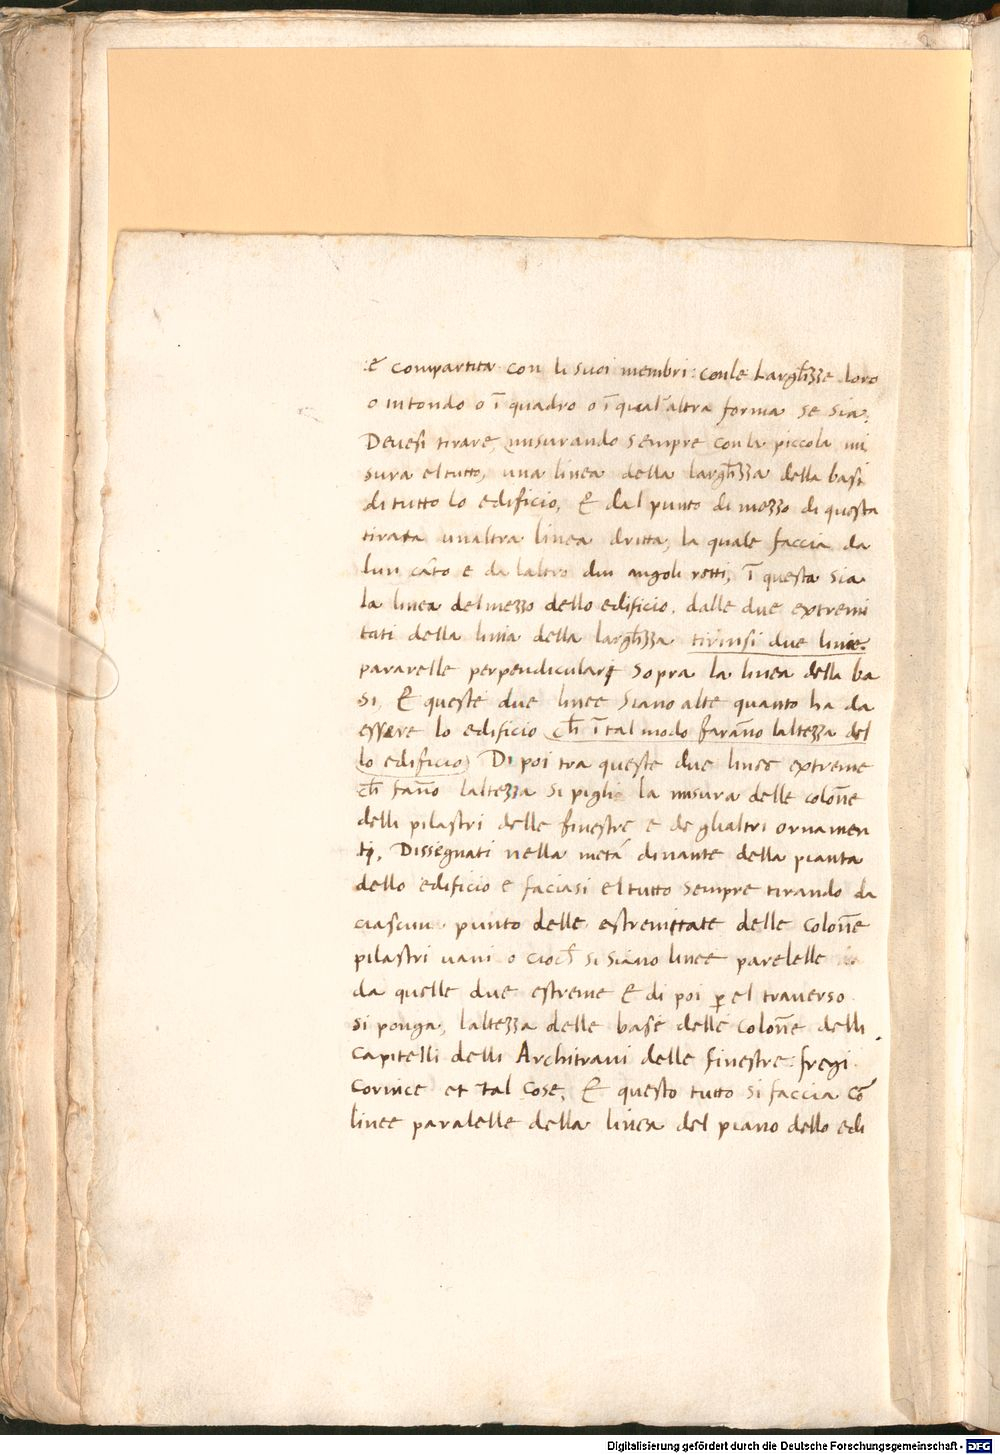 è compartita con li suoi membri: con le Largh̃zze loro
o in tondo o ĩ quadro o ĩ qual altra forma se sia,
Devesi tirare, misurando sempre con la piccola mi
sura el tutto, una linea della largh̃zza della basi
di tutto lo edificio, & dal punto di mezzo di questa
tirata unaltra linea dritta, la quale faccia da
lun cãto e da laltro dui angoli retti, ĩ questa sia
la linea del mezzo dello edificio. dalle due extremi
tati della linia della largh̃zza tirinsi due linie
pararelle perpendiculari sopra la linea della ba
si, & queste due linee siano alte quanto ha da
essere lo edificio ch̃ ĩ tal modo farãno laltezza del
lo edificio) Di poi tra queste due linee extreme
ch̃ fãno laltezza si pigli la misura delle colõne
delli pilastri delle finestre e de glialtri ornamen
ti, Dissegnati nella metà dinante della pianta
dello edificio e faciasi el tutto sempre tirando da
ciascun punto delle estremitate delle colõne
pilastri vani o cioch̃ si siano linee parelelle
da quelle due estreme & di poi ꝑ el traverso
si ponga, laltezza delle base delle colõne delli
Capitelli delli Architravi delle finestre: fregi
Cornice et tal cose, & questo tutto si faccia cõ
linee paralelle della linea del piano dello edi
Digitalisierung gefördert durch die Deutsche Forschungsgemeinschaft - DFG